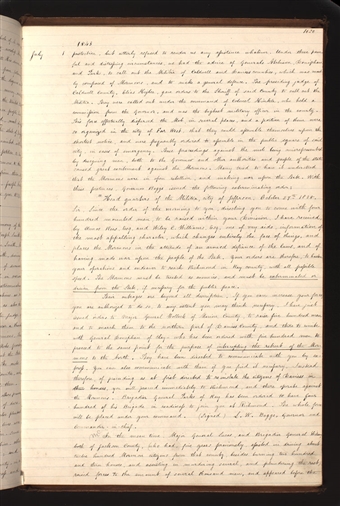 1620
1841
July 1 protection, but utterly refused to render us any assistance whatever. Under these pain-
ful and distressing circumstances, we had the advice of Generals Atchison, Doniphan
and Parks, to call out the Militia of Caldwell and Daviess counties, which was most
by composed of Mormons, and to make a general defence. The presiding judge of
Caldwell County, Elias Higbee, gave orders to the Sheriff of said County to call out the
Militia. They were called out under the command of Colonel Hinkle, who held a
commission from the Governor, and was the highest military officer in the county.
This force effectually dispersed the Mob in several places, and a portion of them were
so organized in the city of Far West, that they could assemble themselves upon the
shortest notice, and were frequently ordered to assemble in the public square of said
city, in cases of emergency. These proceedings against the mob being misrepresented
by designing men, both to the Governor and other authorities and people of the State
caused great excitement against the Mormons. Many tried to have it understood
that the Mormons were in open rebellion, and making war upon the State. With
these pretences, Governor Boggs issued the following exterminating order;
"Head quarters of the Militia, city of Jefferson, October 27th 1838.
Sir. Since the order of the morning to you, directing you to come with four
hundred mounted men, to be raised within your Division, I have received,
by Amos Rees Esq. and Wiley E. Williams Esq., one of my aids, information of
the most appalling character, which changes entirely the face of things, and
places the Mormons in the attitude of an avowed defiance of the laws, and of
having made war upon the people of the State. Your orders are therefore, to hasten
your operations and endeavor to reach Richmond in Ray County, with all possible
speed. The Mormons must be treated as enemies, and must be exterminated or
driven from the State, if necessary for the public peace.
Their outrages are beyond all description. If you can increase your force
you are authorized to do so, to any extent you may think necessary. I have just
issued orders to Major General
to raise five hundred men
and to march them to the northern part of Daviess County, and there to unite
with General Doniphan of Clay, who has been ordered with five hundred men to
proceed to the same point for the purpose of intercepting the retreat of the Mor-
mons to the North. They have been directed to communicate with you by ex-
press. You can also communicate with them if you find it necessary. Instead
therefore, of proceeding as at first directed to reinstate the citizens of Daviess in
their homes, you will proceed immediately to Richmond, and there operate against
the Mormons. Brigadier General Parks of Ray has been ordered to have four
hundred of his Brigade in readiness to join you at Richmond. The whole force
will be placed under your command. (Signed) L. W. Boggs, Governor and
Commander in chief."
In the mean time, Major General Lucas, and Brigadier General Wilson
both of Jackson County, who had, five years previously, assisted in driving about
twelve hundred Mormon citizens from that county, besides burning two hundred
and three houses, and assisting in murdering several, and plundering the rest
raised forces to the amount of several thousand men, and appeared before the